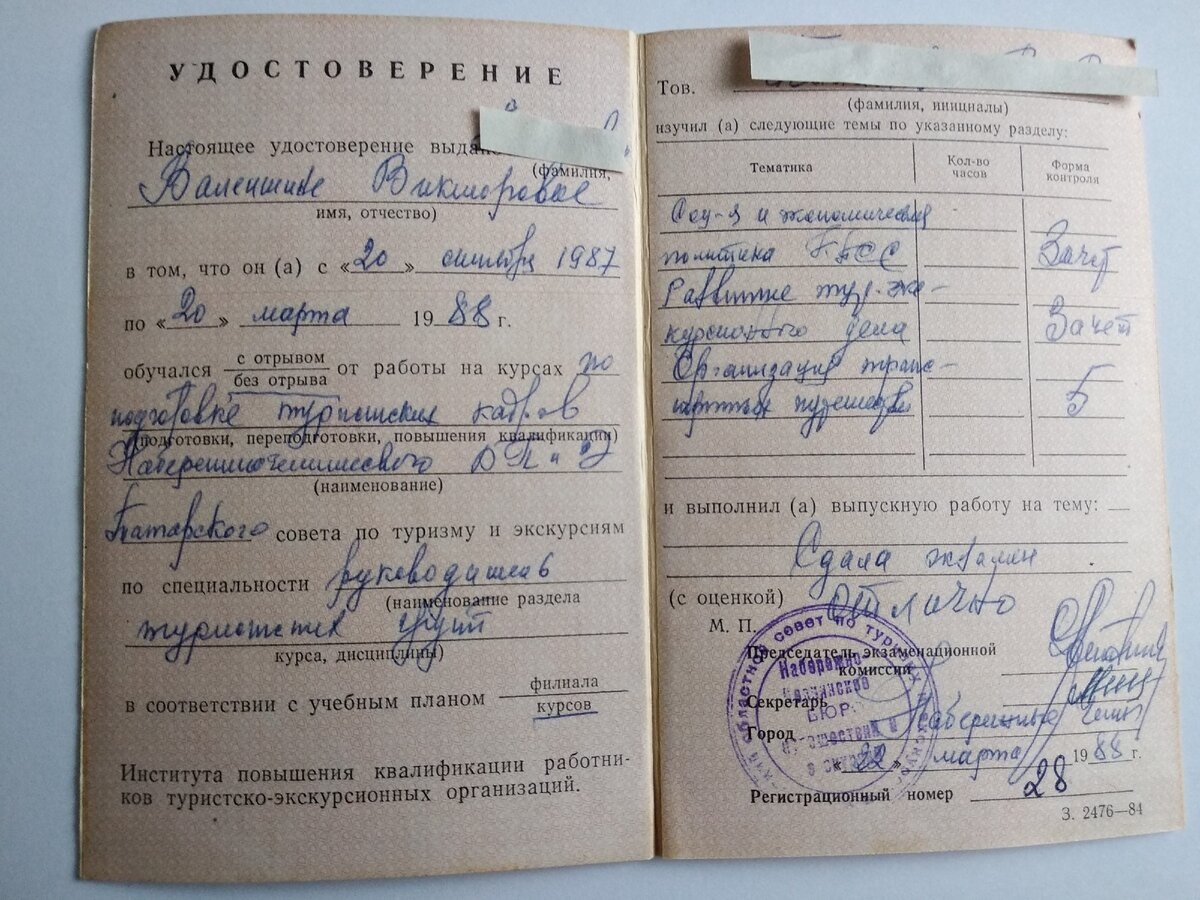 УДОСТОВЕРЕНИЕ
Настоящее удостоверение выда
(фамилия,
Валентине Викторовне
имя, отчество)
в том, что он (а) с «20» октября 1987
по «20» марта 1988 г.
обучался с отрывом
без отрыва от работы на курсах по
подготовке туристских кадров
(подготовки, переподготовки, повышения квалификации)
Набережночелнинского
(наименование)
Татарского совета по туризму и экскурсиям
по специальности руководитель
(наименование раздела
туристских групп
курса, дисциплины)
в соответствии с учебным планом филиала
курсов
Института повышения квалификации работни-
ков туристско-экскурсионных организаций.
Тов.
(фамилия, инициалы)
изучил (а) следующие темы по указанному разделу:
Тематика Кол-во часов Форма контроля
Соц-я и экономическая
политика КПСС Зачет
Развитие тур.-экс-
курсионного дела Зачет
Организация транс-
портных путешествий 5
и выполнил (а) выпускную работу на тему:
Сдала экзамен
(с оценкой) отлично
М. П.
Председатель экзаменационной
комиссии
Секретарь
Город Набережные Челны
«22» марта 1988 г.
Регистрационный номер 28
З. 2476—84
областной совет по туризму и
Набережно-
Челнинское
БЮРО
путешествий и
экскурсий